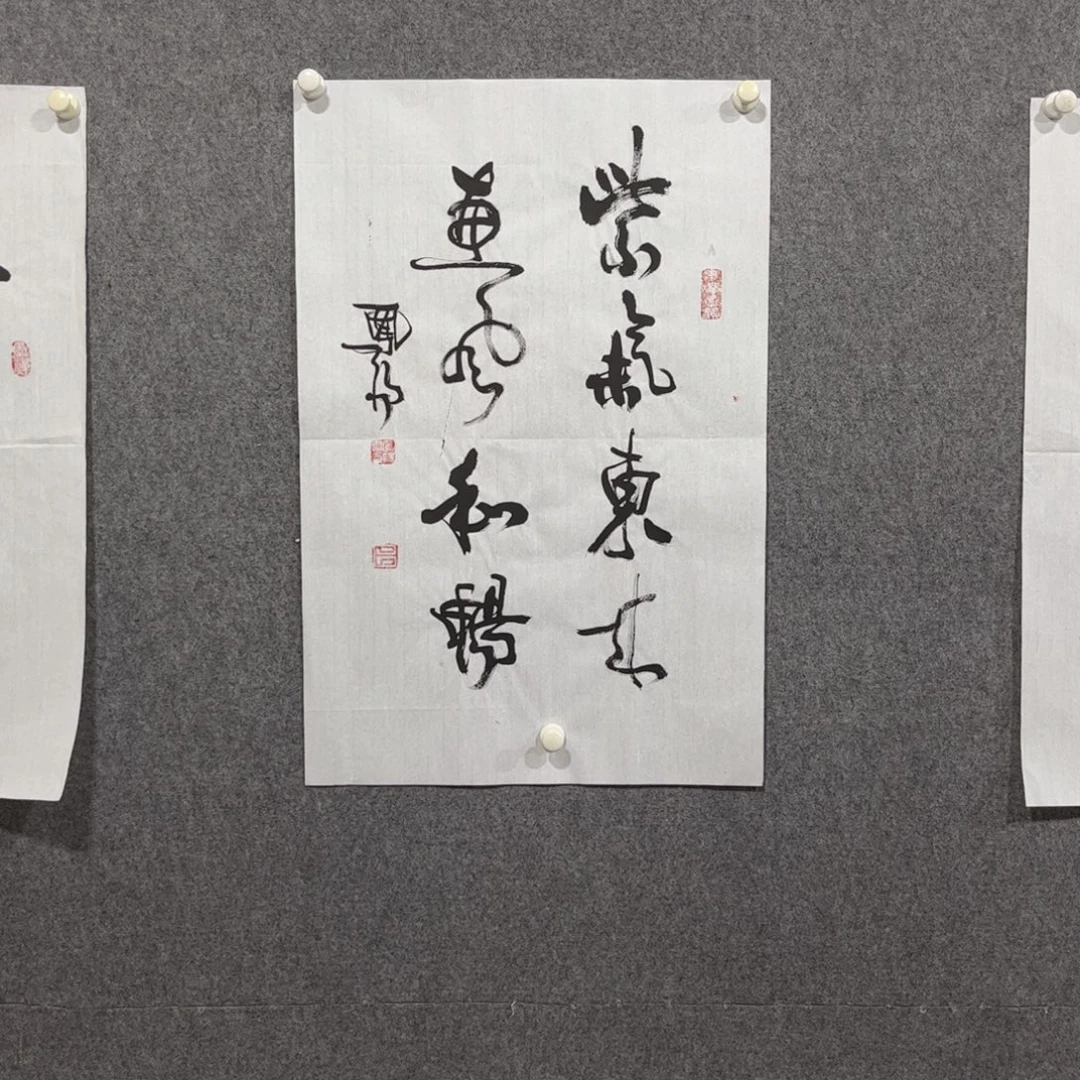 紫氣東来
惠風和暢